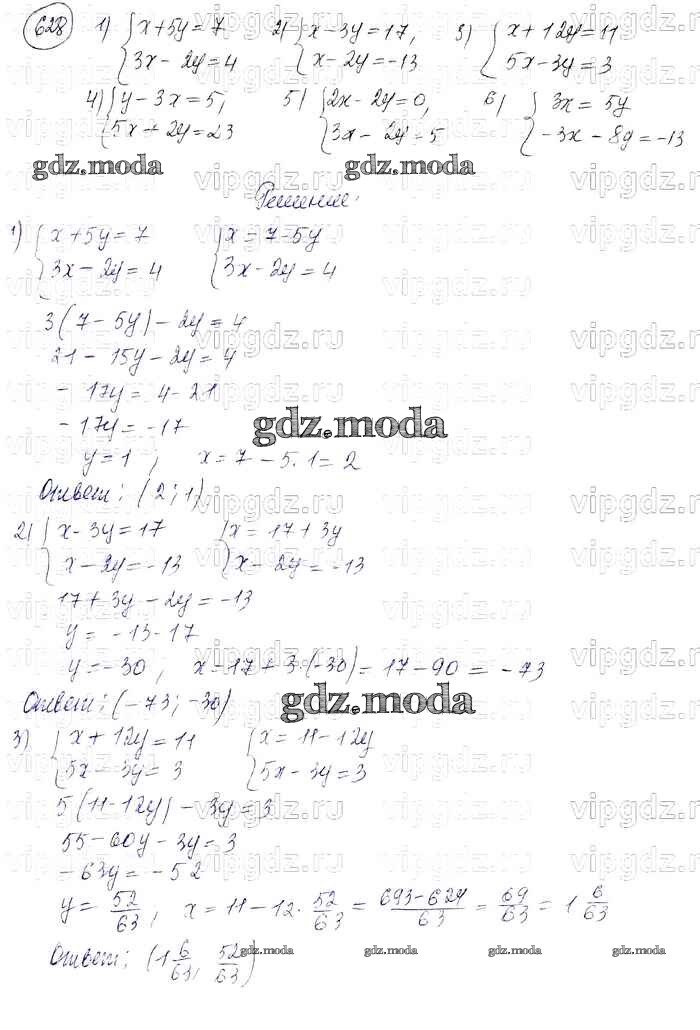 628 1) { x+5y=7 2) { x-3y=17, 3) { x+12y=11
3x-2y=4 x-2y=-13 5x-3y=3
4) { y-3x=5, 5) { 2x-2y=0, 6) { 3x=5y
5x+2y=23 3x-2y=5 -3x-8y=-13
gdz.moda gdz.moda
vipgdz.ru
Решение:
1) { x+5y=7 { x=7-5y
3x-2y=4 3x-2y=4
3(7-5y)-2y=4
21-15y-2y=4
-17y=4-21
-17y=-17
gdz.moda
y=1 ; x=7-5·1=2
Ответ: (2;1)
2) { x-3y=17 { x=17+3y
x-2y=-13 x-2y=-13
17+3y-2y=-13
y=-13-17
y=-30; x=17+3·(-30)=17-90=-73
Ответ: (-73;-30)
gdz.moda
3) { x+12y=11 { x=11-12y
5x-3y=3 5x-3y=3
5(11-12y)-3y=3
55-60y-3y=3
-63y=-52
y=52/63, x=11-12·52/63=693-624/63=69/63=1 6/63
Ответ: (1 6/63, 52/63)
gdz.moda gdz.moda gdz.moda